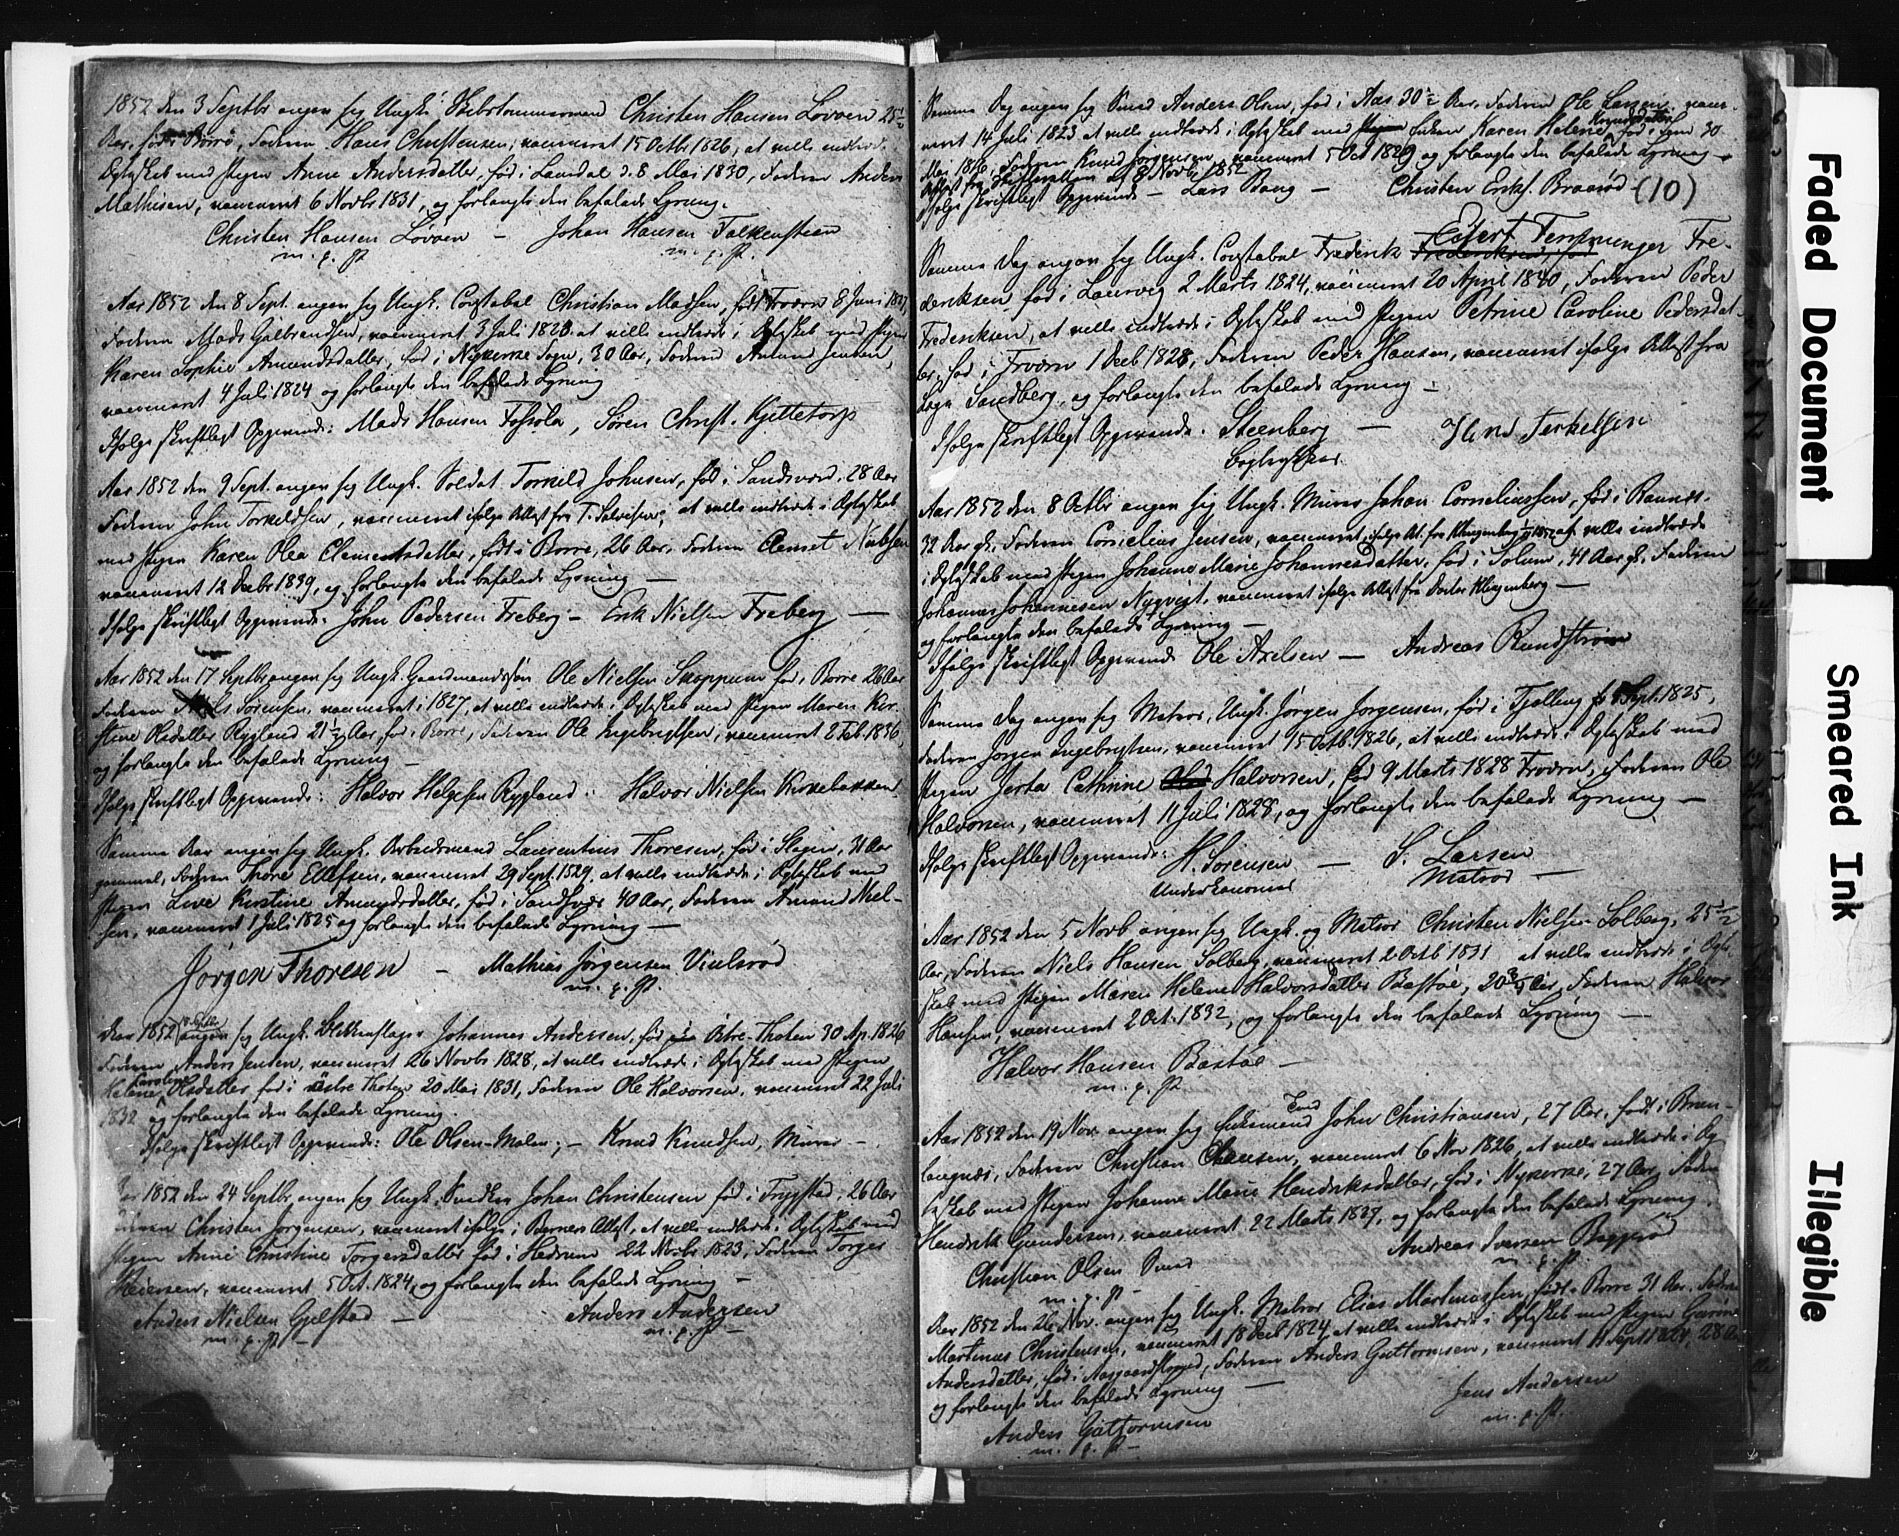 1852 den 3 Septbr angav sig Ungk. Skibstømmermand Christen Hansen Løvøen 25½
Aar, fød i Borrø, Faderen Hans Christensen, vaccineret 15 Octbr 1826, at ville indtræde
Ægteskab med Pigen Anne Andersdatter, fød i Laurdal d. 8 Mai 1830, Faderen Anders
Mathisen, vaccineret 6 Novbr 1831, og forlangte den befalede Lysning.
Christen Hansen Løvøen – Johan Hansen Falkensteen
m. p. P. m. p. P.
Aar 1852 den 8 Sept. angav sig Ungk. Constabel Christian Madsen, født Fraværn 8 Juni 1827,
Faderen Mads Gulbrandsen, vaccineret 3 Juli 1828 at ville indtræde i Ægteskab med Pigen
Karen Sophie Amundsdatter, fød i Nykerne Sogn, 30 Aar, Faderen Amund Jensen,
vaccineret 4 Juli 1824 og forlangte den befalede Lysning
Ifølge skriftligt Opgivende: Mads Hansen, Søren Christ. Kjettetorp
Aar 1852 den 9 Sept. angav sig Ungk. Soldat Torkild Johnsen, fød i Sandsværd, 28 Aar
Faderen John Torkeldsen, vaccineret ifølge Attest fra T. Salvesen, at ville indtræde i Ægteskab
med Pigen Karen Olea Clemetsdatter, født i Borre, 26 Aar, Faderen Clemet
vaccineret 12 Decbr 1839, og forlangte den befalede Lysning —
Ifølge skriftligt Opgivende. John Pedersen Freberg – Erik Nielsen Freberg —
Aar 1852 den 17 Septbr angav sig Ungk. Gaardmandssøn Ole Nielsen Skoppum fød i Borre 26 Aar
Faderen Niels Sørensen, vaccineret i 1827, at ville indtræde i Ægteskab med Pigen Maren Kir-
stine Olsdatter Rygland 21½ Aar, fød i Borre, Faderen Ole Ingebrigtsen, vaccineret 2 Feb. 1836,
og forlangte den befalede Lysning —
Ifølge skriftligt Opgivende: Halvor Helgesen Rygland. Halvor Nielsen Kirkebakken
Samme Aar angav sig Ungk. Arbeidsmand Laurentius Thoresen, fød i Slagen, 31 Aar
gammel, Faderen Thore Ellefsen, vaccineret 29 Sept. 1829, at ville indtræde i Ægteskab med
Pigen Live Kirstine Amundsdatter, fød i Sandsvær 40 Aar, Faderen Amund Niel-
sen, vaccineret 1 Juli 1825 og forlangte den befalede Lysning —
Jørgen Thoresen – Mathias Jørgensen
m. p. P.
Aar 1852 angav sig Ungk. Johannes Andersen, fød Østre-Thoten 30 Ap. 1826
Faderen Anders Jensen, vaccineret 26 Novbr 1828, at ville indtræde i Ægteskab med Pigen
Helene Karoline Olsdatter fød i østre Thoten 20 Mai 1831, Faderen Ole Halvorsen, vaccineret 22 Juli
1832 og forlangte den befalede Lysning.
Ifølge skriftligt Opgivende: Ole Olsen-Molen; – Knud Knudsen, Murer –
Aar 1852 den 24 Septbr angav sig Ungk. Snedker Johan Christensen fød i Trygstad, 26 Aar
Christen Jørgensen, vaccineret ifølge Attest, at ville indtræde i Ægteskab med
Pigen Anne Christine Torgersdatter fød i Hedrum 22 Novbr 1823, Faderen Torger
vaccineret 5 Oct. 1824, og forlangte den befalede Lysning –
Anders Nielsen — Anders Andersen
m. p. P. – m. p. P. –
Samme Dag angav sig Smed Anders Olsen, fød i Aas 30½ Aar, Faderen Ole Larsen, vacci-
neret 14 Juli 1823 at ville indtræde i Ægteskab med Enken Karen Helene Knudsdatter, fød i 30
Mai 1816, Faderen Knud Jørgensen, vaccineret 5 Oct 1829 og forlangte den befalede Lysning –
8 Novbr 1852
Ifølge skriftligt Opgivende – Lars Bang – Christen Eriks. Braarød (10)
Samme Dag angav sig Ungk. Constabel Frederik Fre-
deriksen fød i Laurvig 2 Marts 1824, vaccineret 20 April 1840, Faderen Peder
Frederiksen, at ville indtræde i Ægteskab med Pigen Petrine Caroline Pedersdat-
ter, fød i Fraværn 1 Decb 1828, Faderen Peder Hansen, vaccineret ifølge Attest fra
Læge Sandberg, og forlangte den befalede Lysning –
Ifølge skriftligt Opgivende. Steenberg — Terkelsen
Aar 1852 den 8 Octbr angav sig Ungk. Murer Johan Corneliussen, fød i Ramnæs.
32 Aar gl. Faderen Cornelius Jensen, vaccineret ifølge At. fra Klingenberg at ville indtræde
i Ægteskab med Pigen Johanne Marie Johannesdatter, fød i Solum, 41 Aar gl. Faderen
Johannes Johannesen, vaccineret ifølge Attest fra Doctor Klingenberg –
og forlangte den befalede Lysning –
Ifølge skriftligt Opgivende Ole Axelsen — Andreas Rundstrøm
Samme Dag angav sig Matros, Ungk. Jørgen Jørgensen, fød i Tjølling Sept. 1825,
Faderen Jørgen Ingebrigtsen, vaccineret 15 Octb. 1826, at ville indtræde i Ægteskab med
Pigen Cathrine Halvorsen, fød 9 Marts 1828 Fraværn, Faderen Ole
Halvorsen, vaccineret 11 Juli 1828, og forlangte den befalede Lysning –
Ifølge skriftligt Opgivende: H. Sørensen — S. Larsen
Underkanoneer Matros –
Aar 1852 den 5 Novb angav sig Ungk. og Matros Christen Nielsen Solberg, 25½
Aar, Faderen Niels Hansen Solberg, vaccineret 2 Octb 1831 at ville indtræde i Ægte-
skab med Pigen Maren Helene Halvorsdatter Bastøe, 20¾ Aar, Faderen Halvor
Hansen, vaccineret 2 Oct. 1832, og forlangte den befalede Lysning —
Halvor Hansen Bastøe –
m. p. P.
Aar 1852 den 19 Nov. angav sig Enkemand John Christiansen, 27 Aar, født i Bran-
Faderen Christian Clausen, vaccineret 6 Nov 1826, at ville indtræde i Æg-
teskab med Pigen Johanne Marie Hendriksdatter, fød i Nykerne, 27 Aar, Faderen
Hendrik Gundersen, vaccineret 22 Marts 1827, og forlangte den befalede Lysning.
Christian Olsen Andreas Iversen
m. p. P. – m. p. P.
Aar 1852 den 26 Nov. angav sig Ungk. Matros Elias Martinussen, født i Borre 31 Aar, Faderen
Martinus Christensen, vaccineret 18 Decb 1824, at ville indtræde i Ægteskab med Pigen
Andersdatter, fød i Aasgaardstrand, Faderen Anders Guttormsen, vaccineret 11 Sept 1824, 28 Aar
og forlangte den befalede Lysning —
Anders Guttormsen Jens Andersen
m. p. P. – m. p. P.
Faded Document
Smeared Ink
Illegible